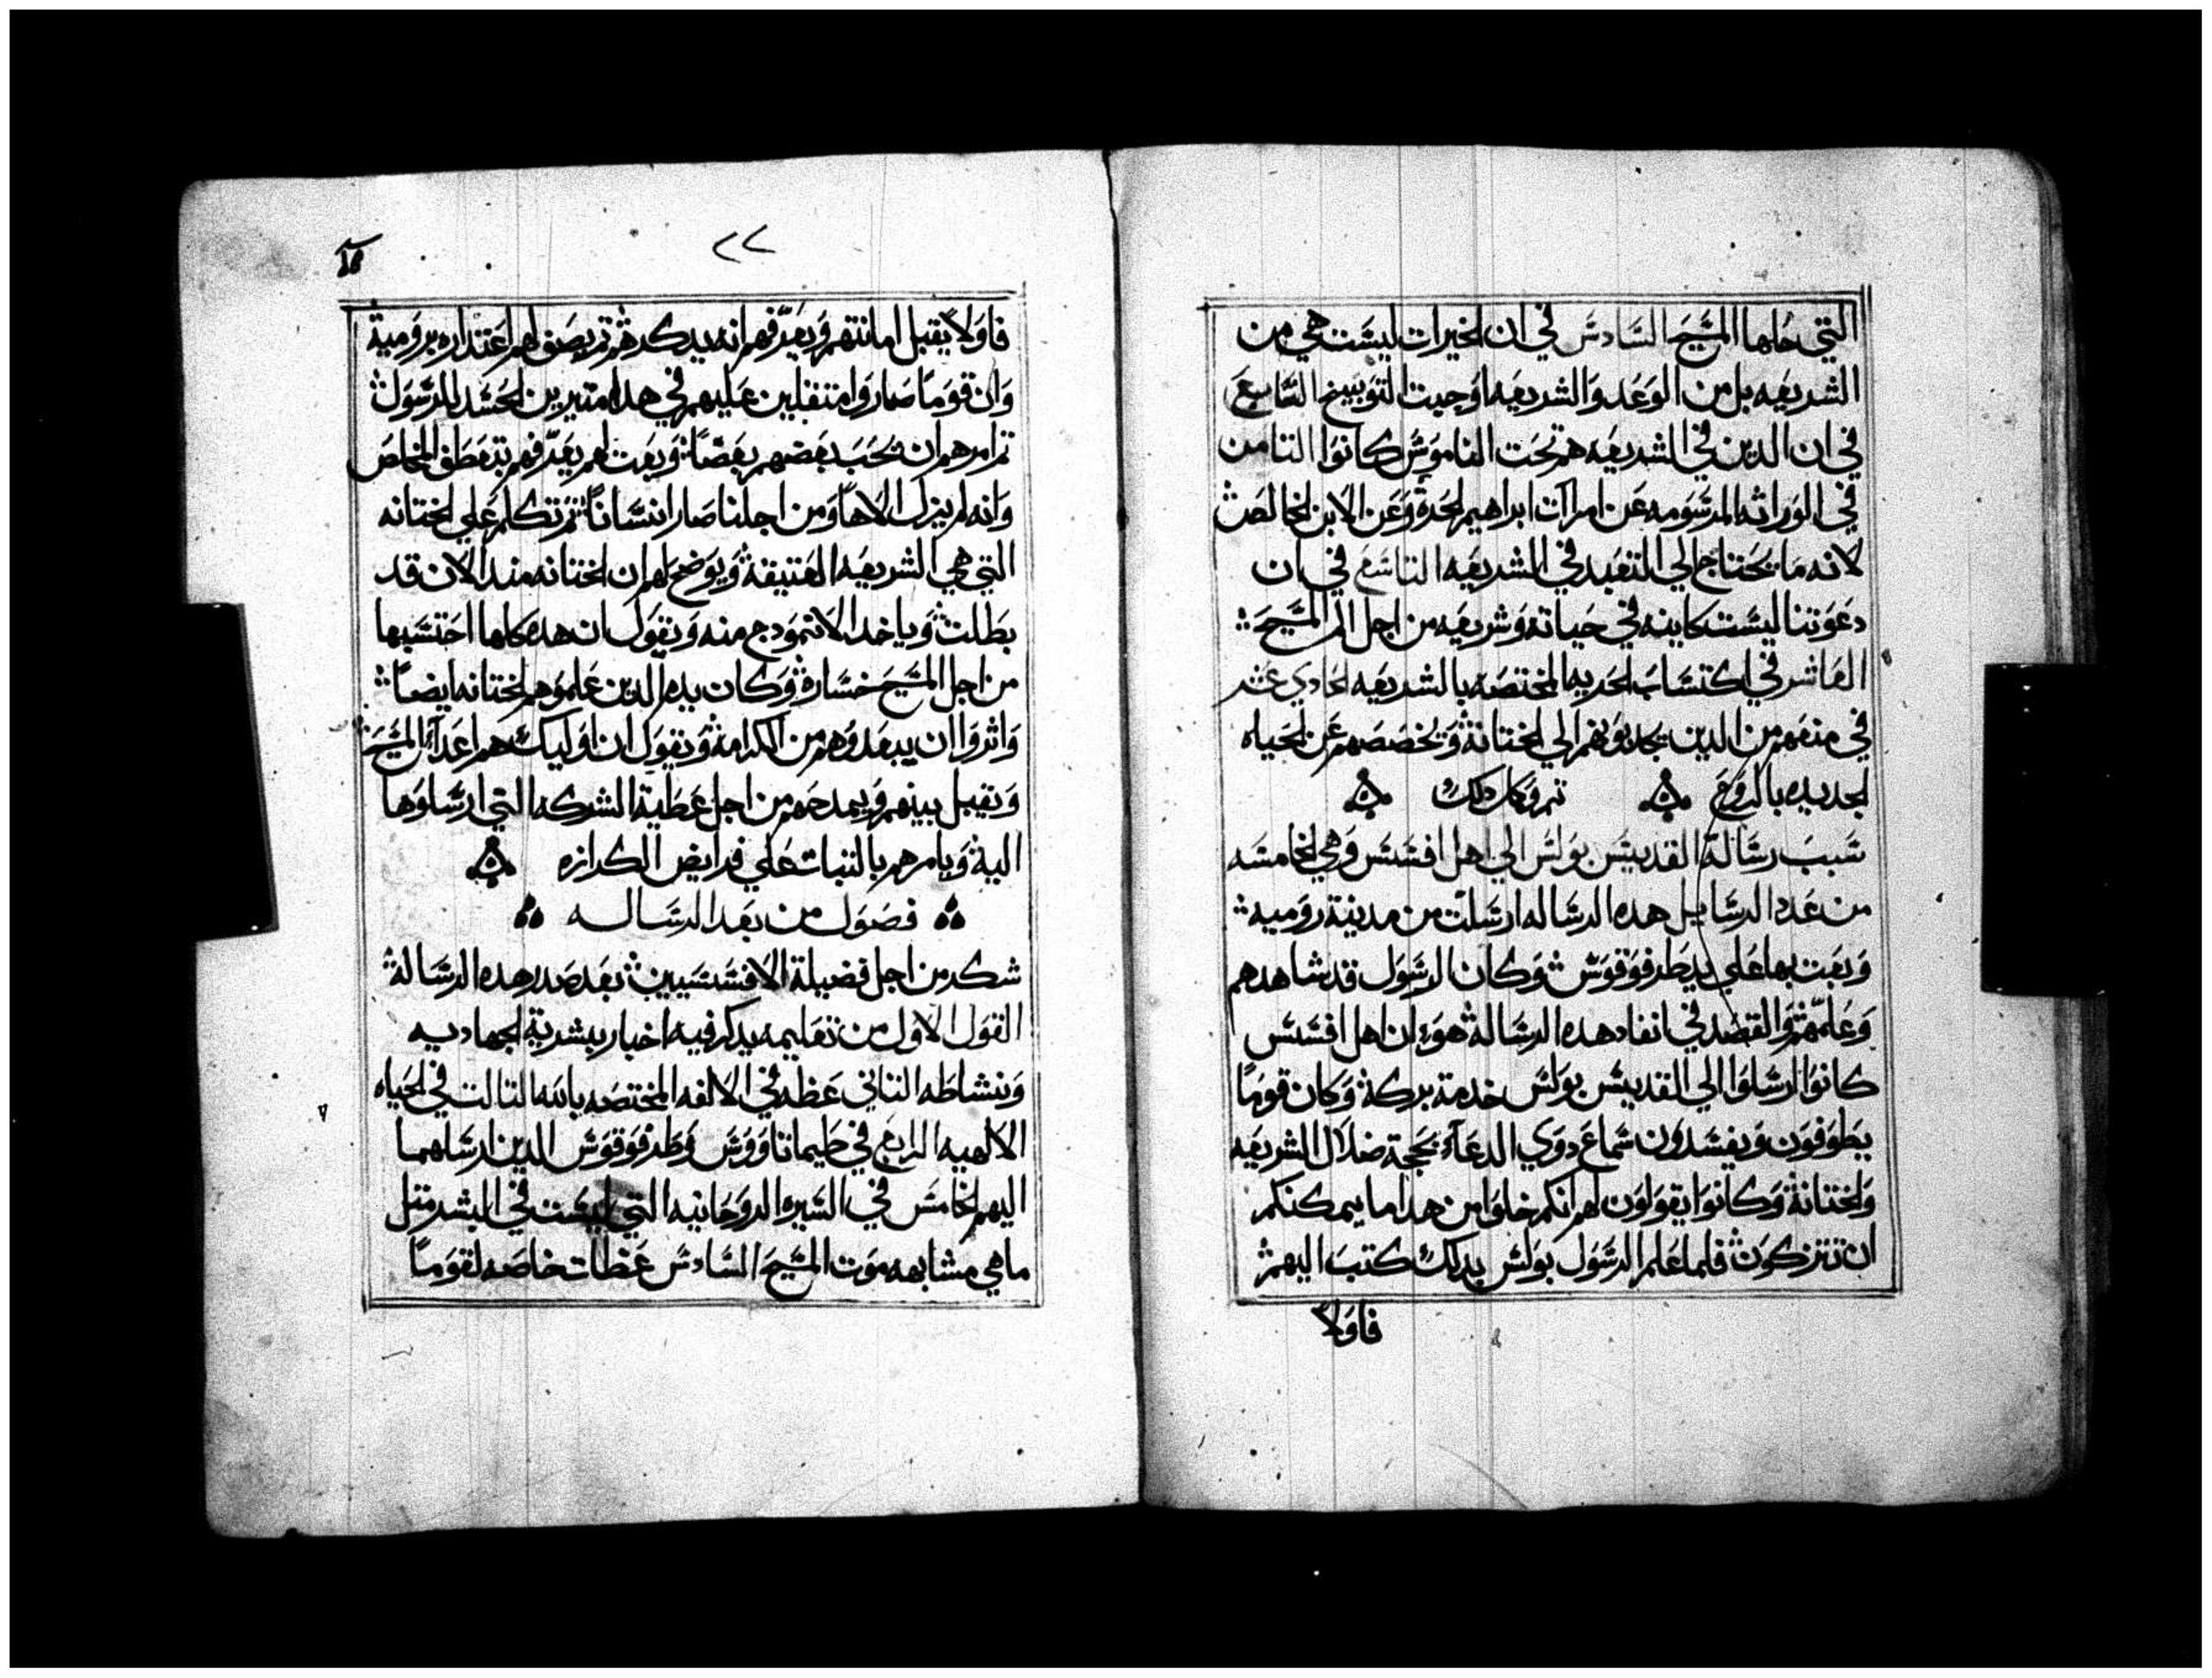 التي حلها المسيح السادس في ان الخيرات ليست هي من
الشريعه بل من الوعد والشريعه اوجبت التوبيخ السابع
في ان الدين في الشريعه هم تحت الناموس كانوا التامن
في الوراثه المرسومه عن امرات ابراهيم الحرة وعن الابن الخالص
لانه ما يحتاج الي التقيد في الشريعه التاسع في ان
دعوتنا ليست كاينه في حياتة وشريعه من اجل الم المسيح
العاشر في اكتساب الحريه المختصه بالشريعه الحادي عشر
في منعهم من الدين يجدبونهم الي الختانة ويخصصهم عن الحياه
الجديده بالروح تم وكمل دلك
سبب رسالة القديس بولس الي اهل افسس وهي الخامسه
من عدد الرسايل هده الرساله ارسلت من مدينة روميه
وبعت بها علي يد طرفوقوس وكان الرسول قد شاهدهم
وعلمهم والقصد في انفاد هده الرسالة هو ان اهل افسس
كانوا ارسلوا الي القديس بولس خدمة بركة وكان قوما
يطوفون ويفسدون سماع دوي الدعاء بحجة ضلال الشريعه
والختانة وكانوا يقولون لهم انكم خلوا من هدا ما يمكنكم
ان تتزكون فلما علم الرسول بولس بدلك كتب اليهم
فاولا
٢٢
فاولا يقبل امانتهم ويعرفهم انه يدكرهم تم يصف لهم اعتداره برومية
وان قوما صاروا متقلين عليهم في هدا متيرين الحسد للرسول
تم امرهم ان يحب بعضهم بعضا ويعت لهم يعرفهم بتعطف المخلص
وانه لم يزل الاها ومن اجلنا صار انسانا تم تكلم علي الختانه
التي هي الشريعه العتيقة ويوضح لهم ان الختانه مند الان قد
بطلت وياخد الانمودج منه ويقول ان هده كلها احتسبها
من اجل المسيح خسارة وكان بده الدين علموهم الختانه ايضا
واثروا ان يبعدوهم من الكرامة ويقول ان اوليك هم اعداء المسيح
ويقبل بينهم ويمدحهم من اجل عطية الشركه التي ارسلوها
الية ويامرهم بالتبات علي فرايض الكرازه
فصول من بعد الرساله
شكر من اجل فضيلة الافسسيين بعد صدر هده الرسالة
القول الاول من تعليمه يدكر فيه اخبار ببشرية الجهاديه
ونشاطه التاني عظه في الالفه المختصه بالله التالت في الحياه
الالهيه الرابع في طيماتاووس وطرفوقوس الدين ارسلهما
اليهم الخامس في السيره الروحانيه التي ليست في البشر متل
ما هي مشابهه موت المسيح السادس عظات خاصه لقوما